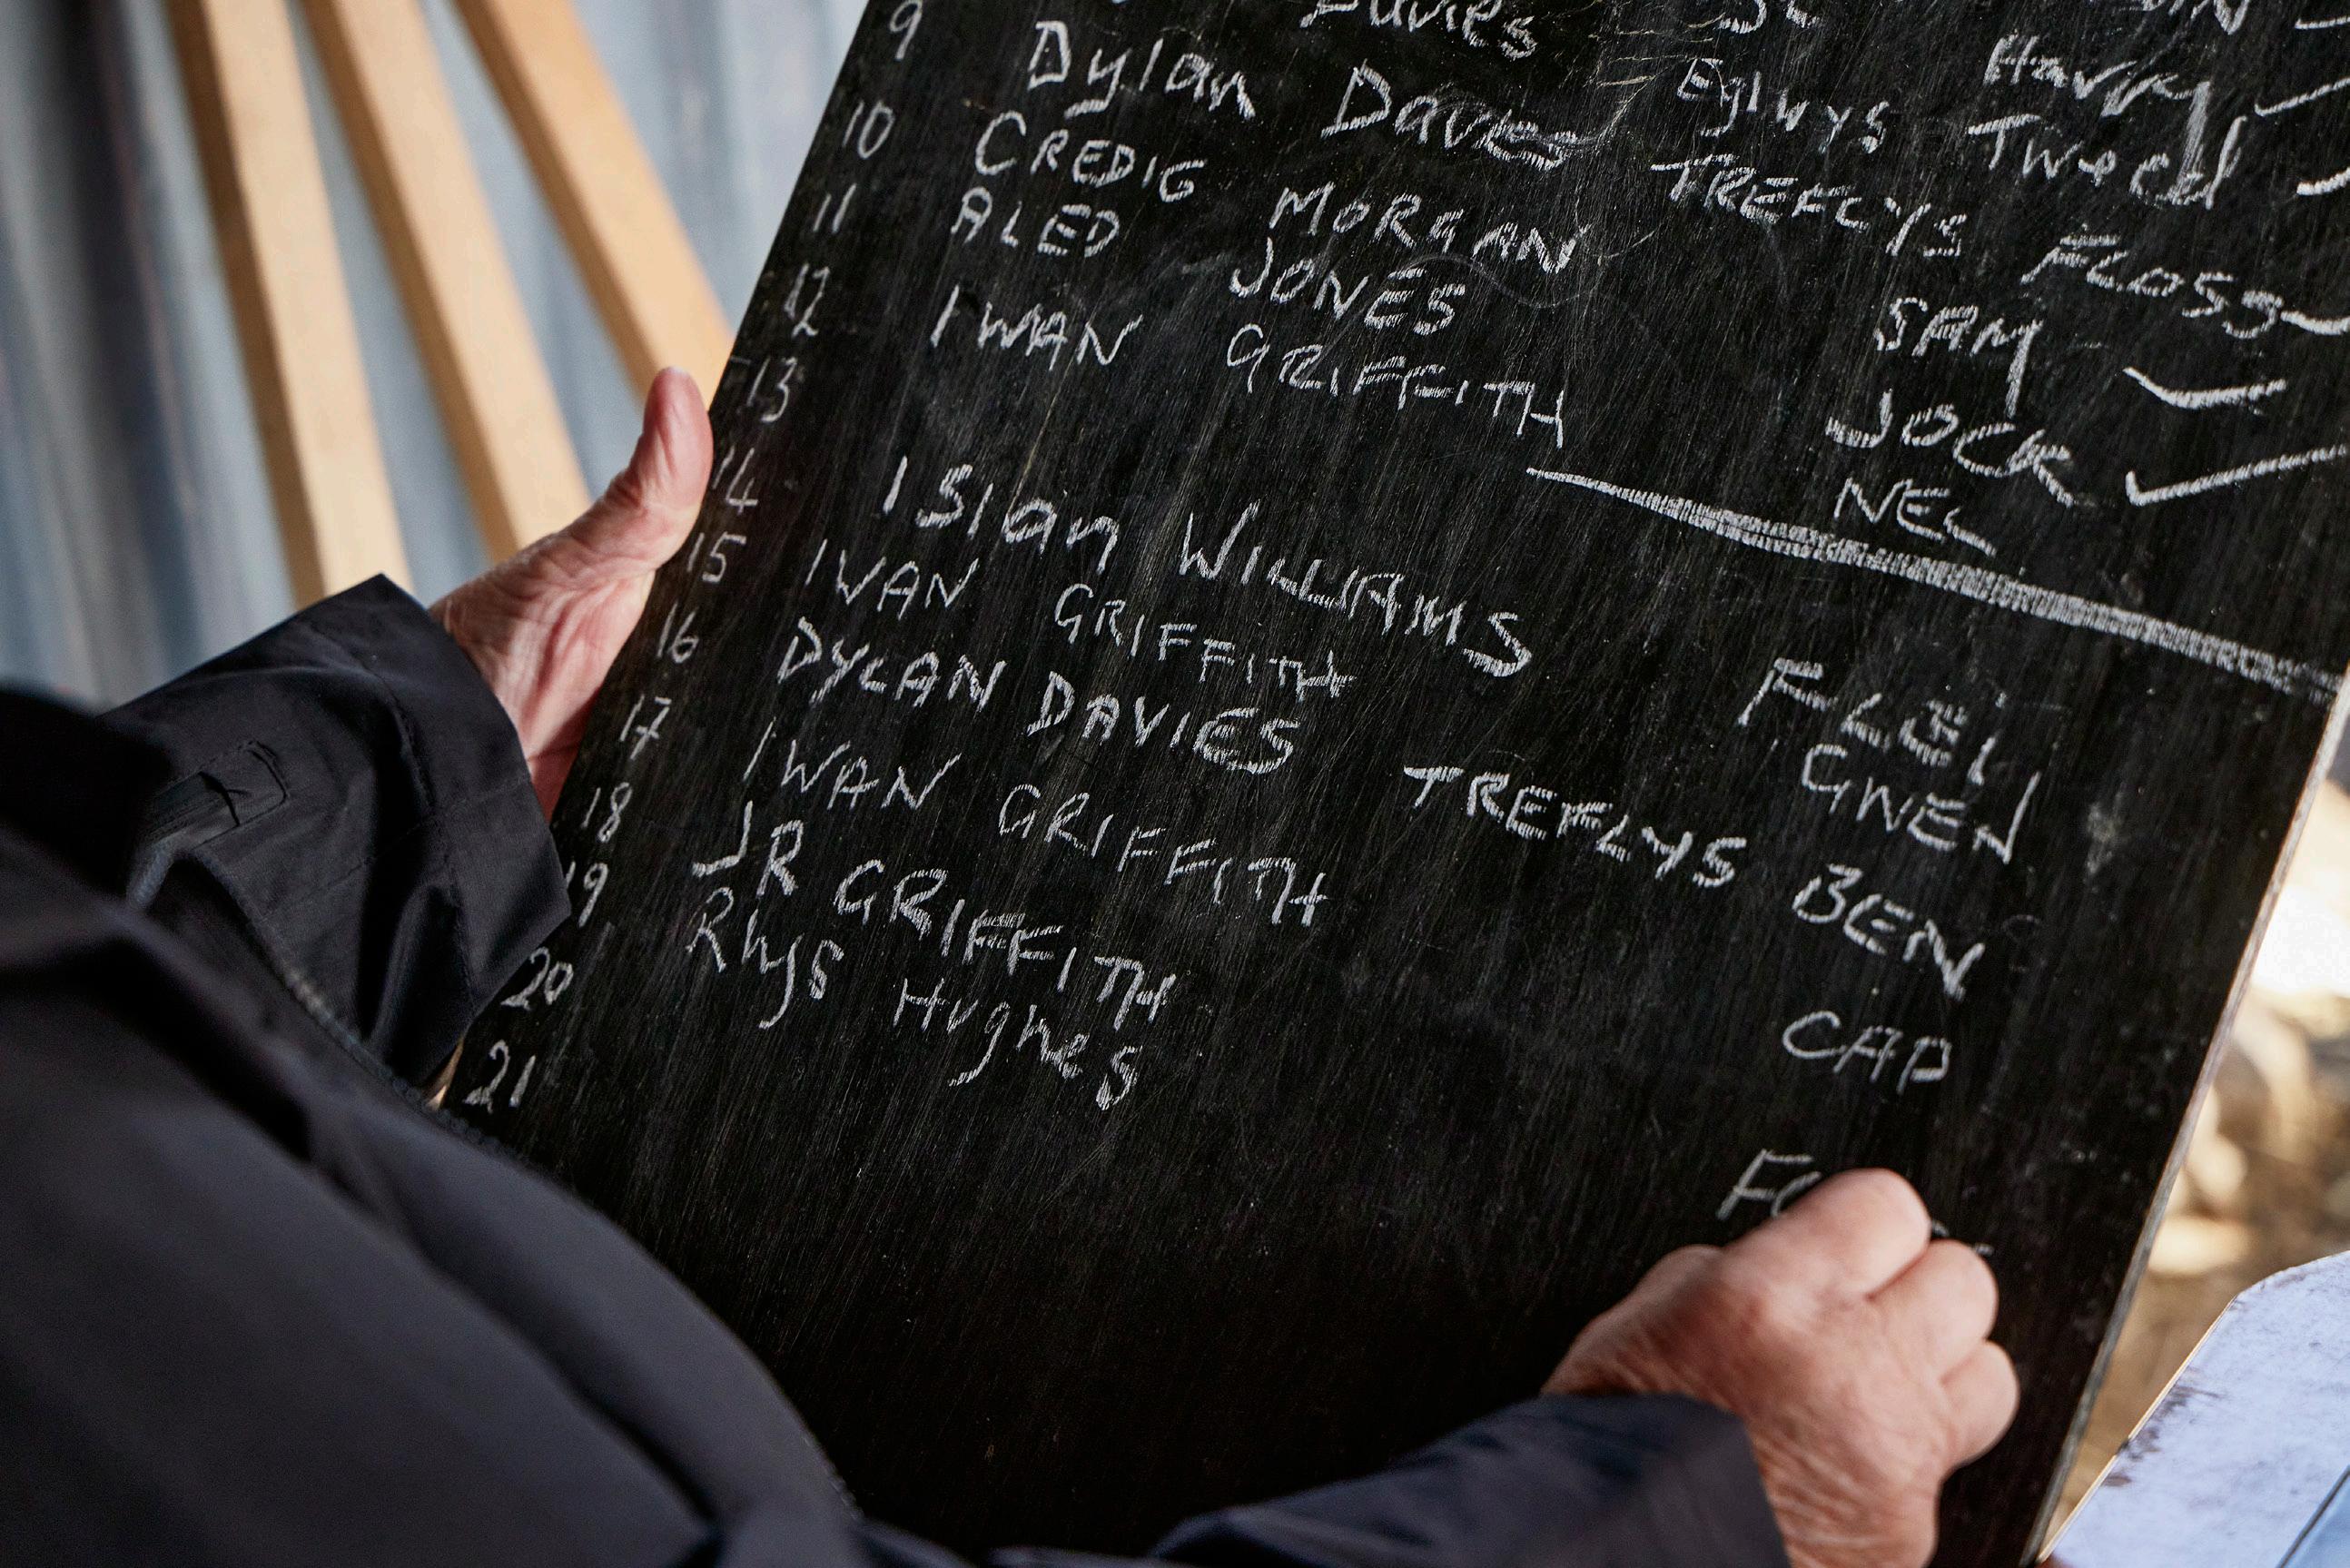 Harry ✓
Davies Eglwys Tweed ✓
9 Dylan Davies TREFLYS FLOSS ✓
10 CREDIG MORGAN SAM ✓
11 ALED JONES JOCK ✓
12 IWAN GRIFFITH NEL
13
14 ISlan WILLIAMS
15 IWAN GRIFFITH GWEN
16 DYLAN DAVIES TREFLYS BEN
17 IWAN GRIFFITH CAP
18 JR GRIFFITH
19 Rhys Hughes
20
21